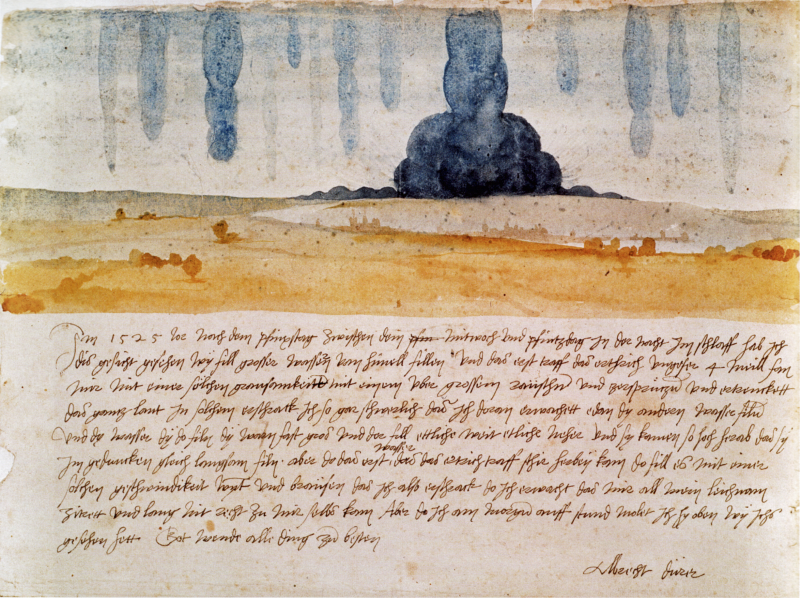 Im 1525 Jor noch dem pfinxtag zwischen dem pfin mitwoch und pfintzdag in der nacht im schlaff hab ich
dis gesicht gesehen wy fill grosser wassern vom himell fillen und das erst traff das erthrich ungefer 4 meill fan
mir mit einer solchen grausamkeitt mit einem uber grossem raüschn und zersprützn und ertrenckett
das gantz lant In solchem erschrack ich so gar schwerlich das ich doran erwachett edan dy andern wasser filn
und dy wasser dy do filn dy warn fast gros und der fill ettliche weit etliche neher und sy kamen so hoch herab das sy
im gedancken gleich langsam filn aber do das erst wasser das das ertrich traff schir herbey kam do fill es mit einer
solchen geschwindikeit wynt und braüsen das ich also erschrack do ich erwacht das mir all mein leichnam
zitrett und lang nit recht zu mir selbs kam Aber do ich am morgn auff stund molet ich hy oben wy ichs
gesehen hett Got wende alle ding zu besten
Albrecht dürer